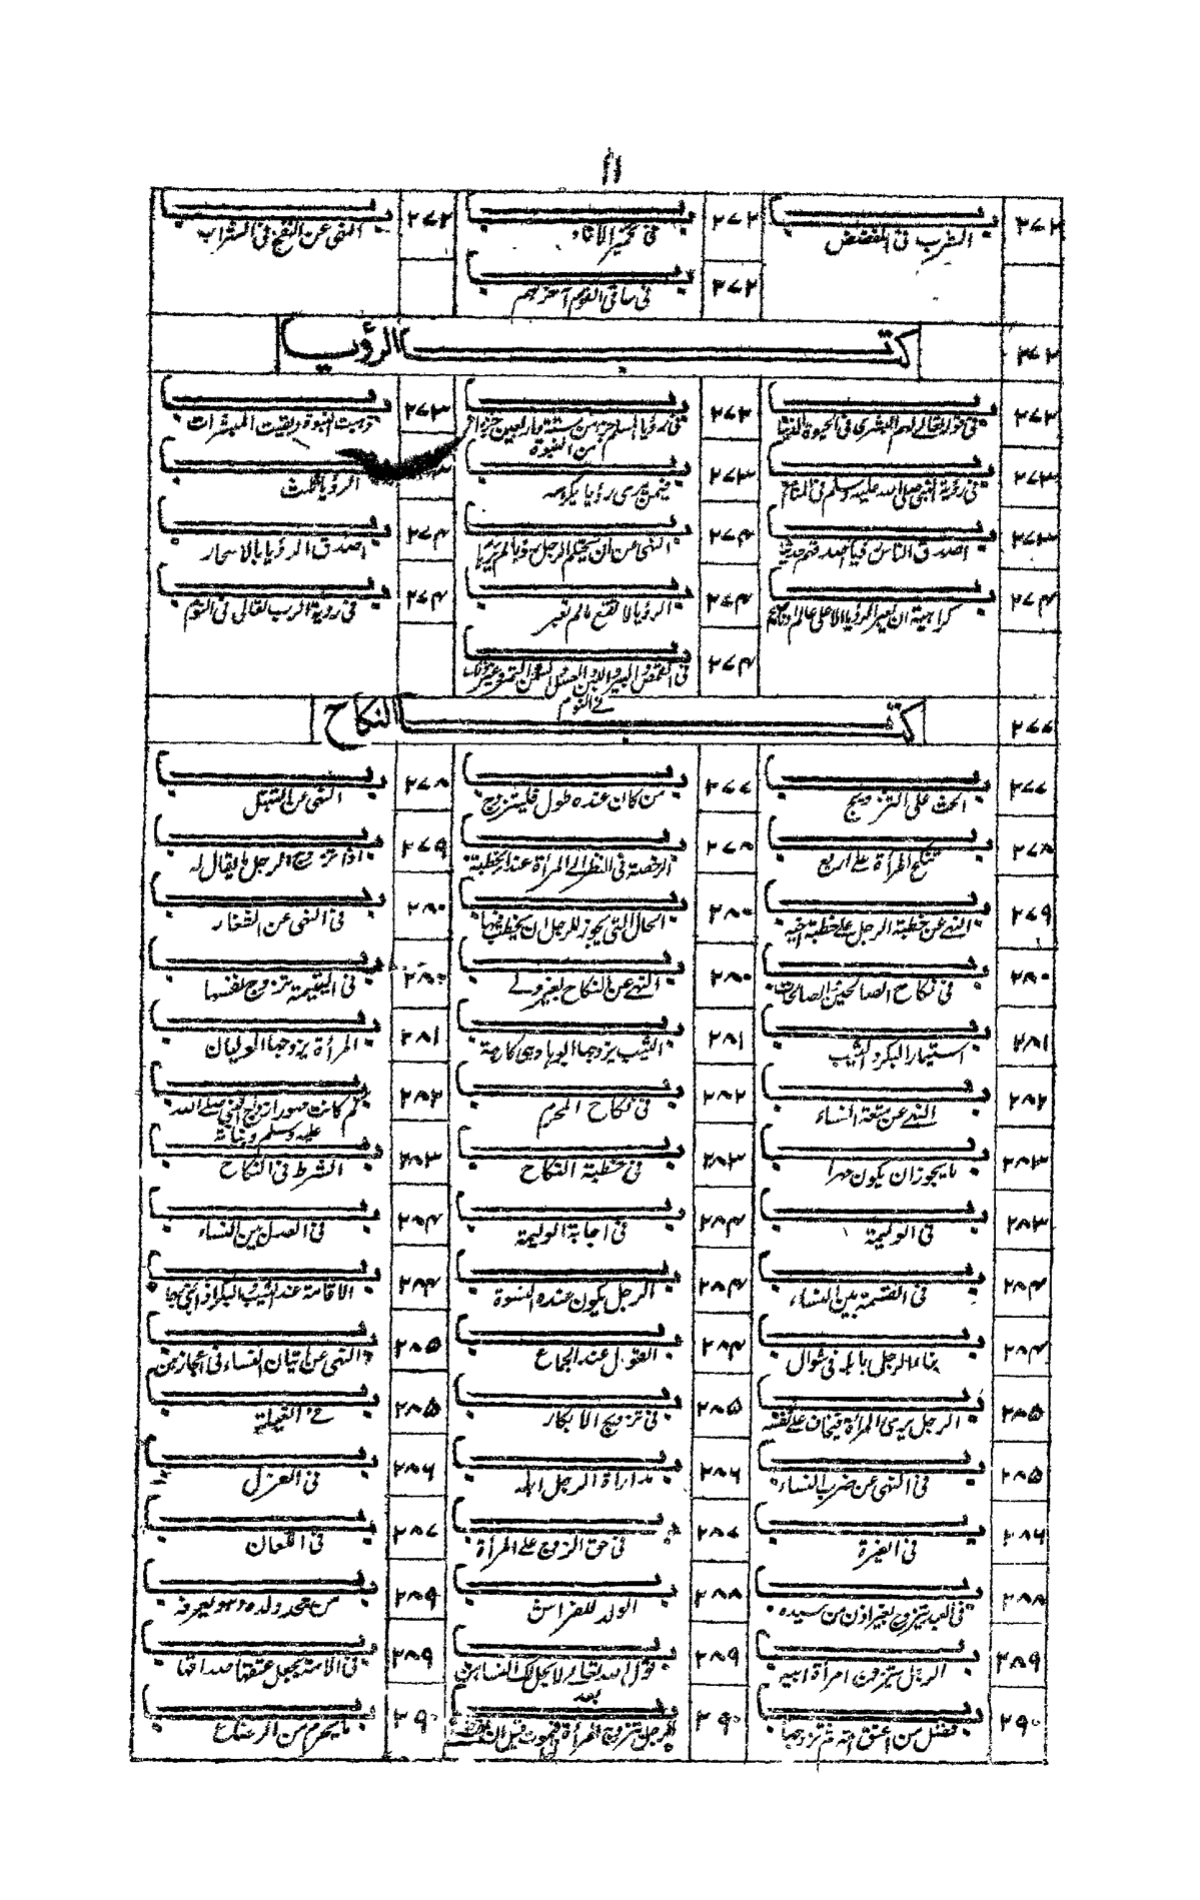 ۱۱
۲۷۲ باب الشرب فی المفضض ۲۷۲ باب فی تخمیر الاناء ۲۷۲ باب النهی عن النفخ فی الشراب
۲۷۲ باب فی ساقی القوم آخرهم
۲۷۲ کتاب الرؤیا
۲۷۲ باب فی قوله تعالے لهم البشری فی الحیوة الدنیا ۲۷۲ باب فی رؤیا المسلم جزء من ستة واربعین جزءا من النبوة ۲۷۳ باب ذهبت النبوة وبقیت المبشرات
۲۷۳ باب فی رؤیة النبی صلی الله علیه وسلم فی المنام ۲۷۳ باب فیمن یری رؤیا یکرهه باب الرؤیا ثلث
۲۷۳ باب اصدق الناس رؤیا اصدقهم حدیثا ۲۷۴ باب النهی عن ان یتحلم الرجل رؤیا لم یرها ۲۷۴ باب اصدق الرؤیا بالاسحار
۲۷۴ باب کراهیة ان یعبر الرؤیا الا علی عالم او ناصح ۲۷۴ باب الرؤیا لا تقع ما لم تعبر ۲۷۴ باب فی رویة الرب تعالی فی النوم
۲۷۴ باب فی القمص والبیر واللبن والعسل والسمن والتمر وغیر ذلک فے النوم
۲۷۷ کتاب النکاح
۲۷۷ باب الحث علی التزویج ۲۷۷ باب من کان عنده طول فلیتزوج ۲۷۸ باب النهی عن التبتل
۲۷۸ باب تنکح المرأة علے اربع ۲۷۸ باب الرخصة فی النظر الے المرأة عند الخطبة ۲۷۹ باب اذا تزوج الرجل ما یقال له
۲۷۹ باب النهے عن خطبة الرجل علے خطبة اخیه ۲۸۰ باب الحال التی یجوز للرجل ان یخطب فیها ۲۸۰ باب فی النهی عن الشغار
۲۸۰ باب فی نکاح الصالحین والصالحات ۲۸۰ باب النهے عن النکاح بغیر ولے ۲۸۰ باب فی الیتیمة تزوج نفسها
۲۸۱ باب استیمار البکر والثیب ۲۸۱ باب الثیب یزوجها ابوها وهی کارهة ۲۸۱ باب المرأة یزوجها الولیان
۲۸۲ باب النهے عن متعة النساء ۲۸۲ باب فی نکاح المحرم ۲۸۲ باب کم کانت مهور ازواج النبی صلے الله علیه وسلم وبناته
۲۸۳ باب ما یجوز ان یکون مهرا ۲۸۳ باب فی خطبة النکاح ۲۸۳ باب الشرط فی النکاح
۲۸۳ باب فی الولیمة ۲۸۴ باب فی اجابة الولیمة ۲۸۴ باب فی العدل بین النساء
۲۸۴ باب فی القسمة بین النساء ۲۸۴ باب الرجل یکون عنده النسوة ۲۸۴ باب الاقامة عند الثیب والبکر اذا بنی بها
۲۸۴ باب بناء الرجل باهله فی شوال ۲۸۴ باب القول عند الجماع ۲۸۵ باب النهی عن اتیان النساء فی اعجازهن
۲۸۵ باب الرجل یری المرأة فیخاف علے نفسه ۲۸۵ باب فی تزویج الابکار ۲۸۵ باب فے الغیلة
۲۸۵ باب فی النهی عن ضرب النساء ۲۸۶ باب مداراة الرجل اهله ۲۸۶ باب فی العزل
۲۸۶ باب فی الغیرة ۲۸۷ باب فی حق الزوج علے المرأة ۲۸۷ باب فی اللعان
۲۸۸ باب فی العبد یتزوج بغیر اذن من سیده ۲۸۸ باب الولد للفراش ۲۸۹ باب من جحد ولده وهو یعرفه
۲۸۹ باب الرجل یتزوج امرأة ابیه ۲۸۹ باب قول الله تعالے لا یحل لک النساء من بعد ۲۸۹ باب فی الامة یجعل عتقها صداقها
۲۹۰ باب فضل من اعتق امة ثم تزوجها ۲۹۰ باب الرجل یتزوج المرأة فیموت قبل ان ۲۹۰ باب ما یحرم من الرضاع